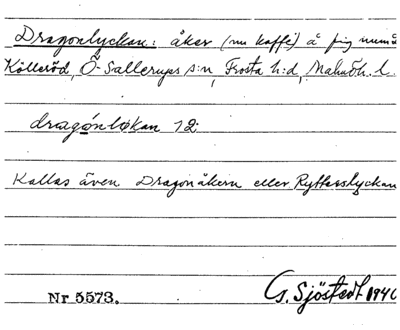 Dragonlyckan: åker (nu kaffé) å fig numå
Källeröd, Ö. Sallerups s:n, Frosta h:d, Malmöh. l.
dragónløkan 12
Kallas även Dragonåkern eller Ryttarelyckan
Nr 5573. G. Sjöstedt 1940